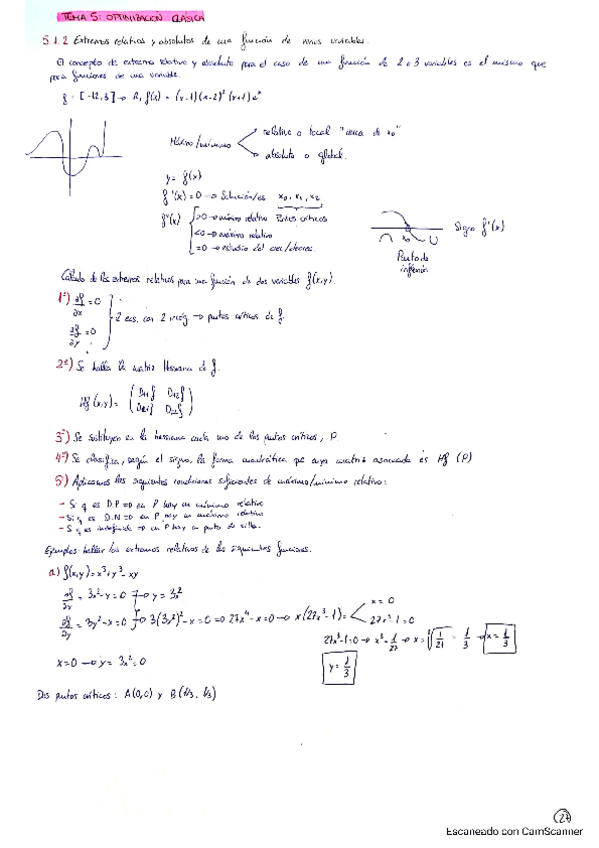 TEMA 5: OPTIMIZACIÓN CLÁSICA
5.1.2 Extremos relativos y absolutos de una función de varias variables.
El concepto de extremo relativo y absoluto para el caso de una función de 2 o 3 variables es el mismo que
para funciones de una variable.
f: [-12,3] → R, f(x) = (x-1)(x-2)² (x+1) eˣ
Máximo/mínimo
relativo o local "cerca de x₀"
absoluto o global.
y = f(x)
f'(x) = 0 → Solución/es x₀, x₁, x₂
Puntos críticos
f''(x) >0 → mínimo relativo
<0 → máximo relativo
=0 → estudio del crec/decrec.
x₀
Signo f'(x)
Punto de
inflexión
Cálculo de los extremos relativos para una función de dos variables f(x,y).
1º) ∂f/∂x = 0
∂f/∂y = 0
2 ecs. con 2 incóg → puntos críticos de f.
2º) Se halla la matriz Hessiana de f.
Hf(x,y) = (D₁₁f D₁₂f
D₂₁f D₂₂f)
3º) Se sustituyen en la hessiana cada uno de los puntos críticos, P.
4º) Se clasifica, según el signo, la forma cuadrática q cuya matriz asociada es Hf (P)
5º) Aplicamos las siguientes condiciones suficientes de máximo/mínimo relativo:
- Si q es D.P ⇒ en P hay un mínimo relativo
- Si q es D.N ⇒ en P hay un máximo relativo
- Si q es indefinida ⇒ en P hay un punto de silla.
Ejemplos: hallar los extremos relativos de las siguientes funciones.
a) f(x,y) = x³+y³-xy
∂f/∂x = 3x²-y = 0 → y = 3x²
∂f/∂y = 3y²-x = 0 → 3(3x²)²-x = 0 ⇒ 27x⁴-x = 0 → x(27x³-1) =
x = 0
27x³-1=0
27x³-1=0 → x³ = 1/27 → x = ∛1/27 = 1/3 → x = 1/3
x=0 → y = 3x² = 0
y = 1/3
Dos puntos críticos: A(0,0) y B(1/3, 1/3)
27
Escaneado con CamScanner